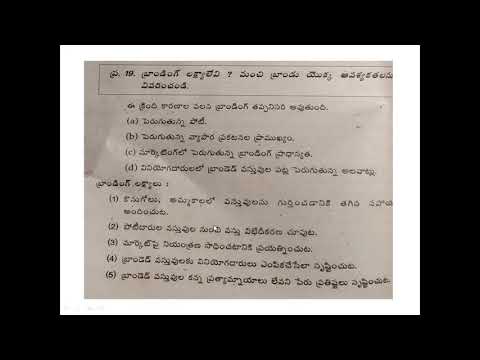 ప్ర. 19. బ్రాండింగ్ లక్ష్యాలేవి ? మంచి బ్రాండు యొక్క ఆవశ్యకతలను
వివరించండి.
ఈ క్రింది కారణాల వలన బ్రాండింగ్ తప్పనిసరి అవుతుంది.
(a) పెరుగుతున్న పోటీ.
(b) పెరుగుతున్న వ్యాపార ప్రకటనల ప్రాముఖ్యం.
(c) మార్కెటింగ్‌లో పెరుగుతున్న బ్రాండింగ్ ప్రాధాన్యత.
(d) వినియోగదారులలో బ్రాండెడ్ వస్తువుల పట్ల పెరుగుతున్న అలవాట్లు.
బ్రాండింగ్ లక్ష్యాలు :
(1) కొనుగోలు, అమ్మకాలలో వస్తువులను గుర్తించడానికి తగిన సహాయ
అందించుట.
(2) పోటీదారుల వస్తువుల నుంచి వస్తు విభేదీకరణ చూపుట.
(3) మార్కెట్‌పై నియంత్రణ సాధించటానికి ప్రయత్నించుట.
(4) బ్రాండెడ్ వస్తువులకు వినియోగదారులు ఎంపికచేసేలా సృష్టించుట.
(5) బ్రాండెడ్ వస్తువుల కన్న ప్రత్యామ్నాయాలు లేవని పేరు ప్రతిష్టలు సృష్టించుట.